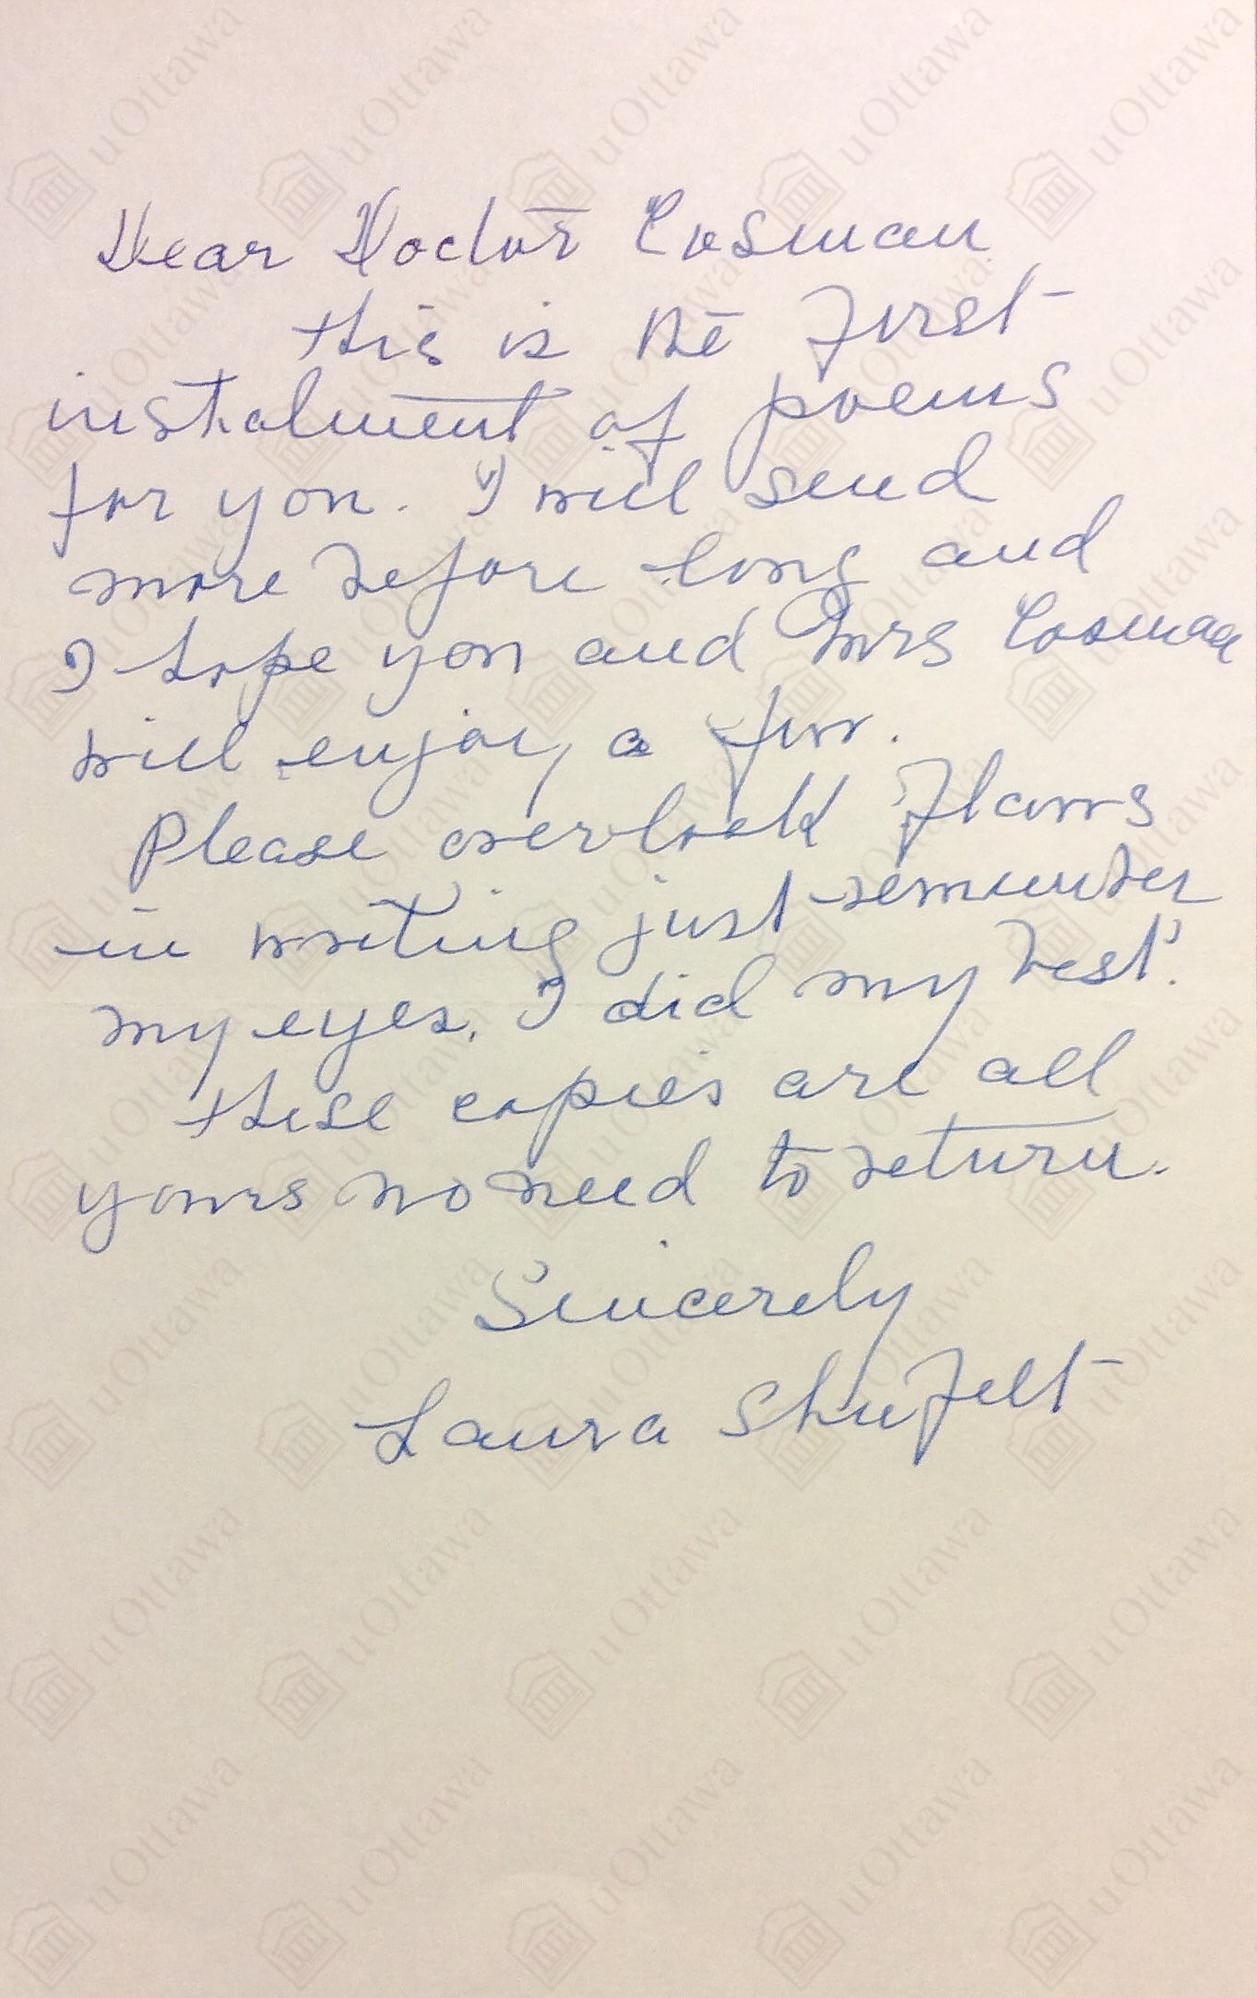 Dear Doctor Cosman
this is the first
instalment of poems
for you. I will send
more before long and
I hope you and Mrs Cosman
will enjoy a few.
Please overlook flaws
in writing just remember
my eyes. I did my best.
these copies are all
yours no need to return.
Sincerely
Laura Shufelt
uOttawa